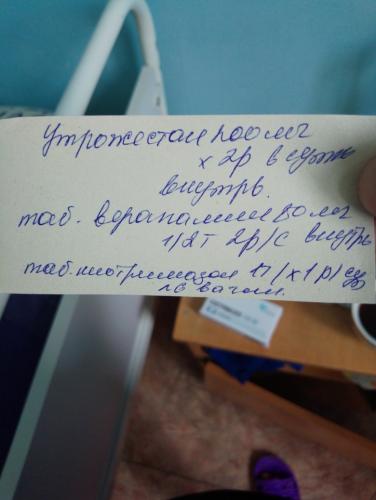 Утрожестан 200мг
х 2р в сутки
внутрь.
таб. верапамил 80 мг
1/2т 2р/с внутрь
таб. клотримазол 1т/х1р/сут
по вагин.